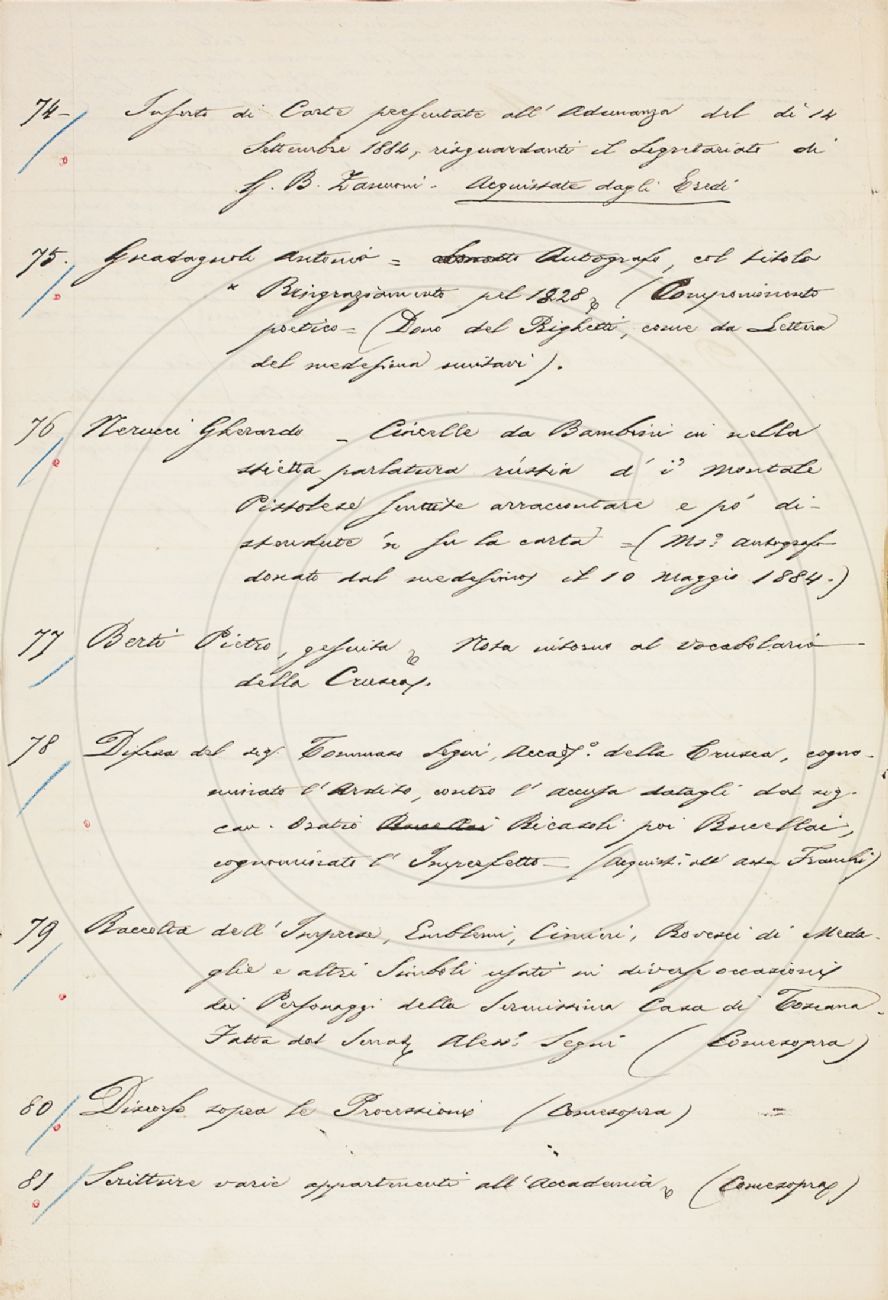 74- Inserto di Carte presentate all' Adunanza del dì 14
Settembre 1884, risguardanti il Segretariato di
G. B. Zannoni. Acquistate dagli Eredi
75. Guadagnoli Antonio = Autografo, col titolo
" Ringraziamento pel 1828 (Componimento
poetico = (Dono del Righetti, come da Lettera
del medesimo unitavi).
76 Nerucci Gherardo - Cincelle da Bambini in nella
stietta parlatura rústia d' i' Montale
Pistolese sentute arraccontare e pó di-
stendute 'n su la carta = (Ms.° autografo
donato dal medesimo il 10 Maggio 1884.)
77 Berti Pietro, gesuita Nota intorno al Vocabolario
della Crusca.
78 Difesa del sig. Tommaso Segni, Accad.° della Crusca, cogno-
minato l'Ardito, contro l'accusa datagli dal sig.
cav. Orazio Rucellai Ricasoli poi Rucellai,
cognominato l'Imperfetto - (Acquist. all' asta Franchi)
79 Raccolta dell'Imprese, Emblemi, Cimieri, Rovesci di Meda-
glie e altri Simboli usati in diverse occasioni
dai Personaggi della Sermissima Casa di Toscana.
Fatta dal Senat. Aless.° Segni (Comesopra)
80 Discorso sopra le Processioni (Comesopra) =
81 Scritture varie appartenenti all'Accademia (Comesopra)